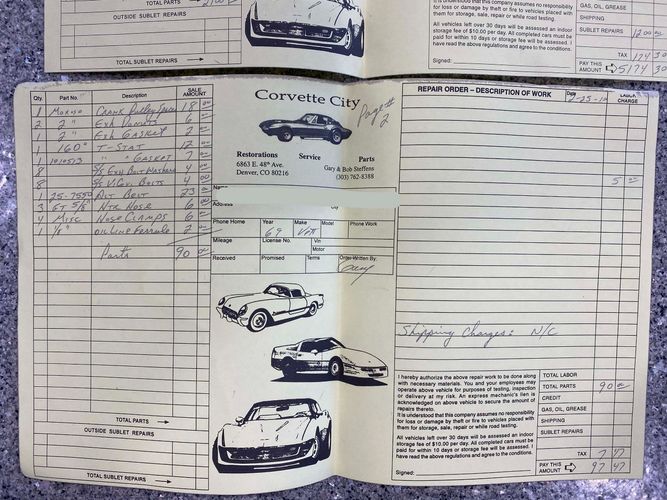 TOTAL PARTS
OUTSIDE SUBLET REPAIRS
TOTAL SUBLET REPAIRS
It is understood that this company assumes no responsibility
for loss or damage by theft or fire to vehicles placed with
them for storage, sale, repair or while road testing.
All vehicles left over 30 days will be assessed an indoor
storage fee of $10.00 per day. All completed cars must be
paid for within 10 days or storage fee will be assessed. I
have read the above regulations and agree to the conditions.
Signed:
GAS, OIL, GREASE
SHIPPING
SUBLET REPAIRS 1200 00
TAX 174 30
PAY THIS AMOUNT 5174 30
Qty. Part No. Description SALE AMOUNT
1 Moroso Crank Pulley 18 00
2 2" Exh Donuts 6 00
2 2" Exh Gasket 2 00
1 160° T-Stat 12 00
1 1010513 " Gasket 7 00
8 Exh Bolt Washers
8 V/Cov. Bolts 4 00
1 25-7550 Alt Belt 23 00
3 FT 5/8 Htr Hose 6 00
4 Misc Hose Clamps 6 00
1 1/8" Oil Line Ferrule 2 00
Parts 90 00
TOTAL PARTS
OUTSIDE SUBLET REPAIRS
TOTAL SUBLET REPAIRS
Corvette City
Page # 2
Restorations Service Parts
6863 E. 48th Ave.
Denver, CO 80216
Gary & Bob Steffens
(303) 762-8388
Name
Address City
Phone Home Year Make Model Phone Work
69 Vett
Mileage License No. Vin
Motor
Received Promised Terms Order Written By
Gary
REPAIR ORDER – DESCRIPTION OF WORK
Date LABOR CHARGE
5 00
Shipping Charges: N/C
I hereby authorize the above repair work to be done along
with necessary materials. You and your employees may
operate above vehicle for purposes of testing, inspection
or delivery at my risk. An express mechanic's lien is
acknowledged on above vehicle to secure the amount of
repairs thereto.
It is understood that this company assumes no responsibility
for loss or damage by theft or fire to vehicles placed with
them for storage, sale, repair or while road testing.
All vehicles left over 30 days will be assessed an indoor
storage fee of $10.00 per day. All completed cars must be
paid for within 10 days or storage fee will be assessed. I
have read the above regulations and agree to the conditions.
Signed:
TOTAL LABOR
TOTAL PARTS 90 00
CREDIT
GAS, OIL, GREASE
SHIPPING
SUBLET REPAIRS
TAX 7 47
PAY THIS AMOUNT 97 47